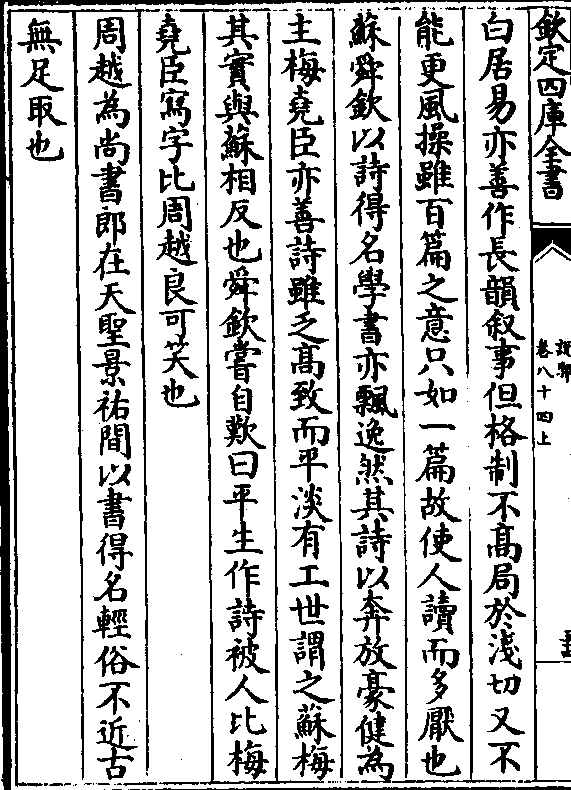 欽定四庫全書
說郛
卷八十四上
白居易亦善作長韻叙事但格制不髙局於淺切又不
能更風操雖百篇之意只如一篇故使人讀而多厭也
蘇舜欽以詩得名學書亦飄逸然其詩以奔放豪健為
主梅堯臣亦善詩雖乏髙致而平淡有工世謂之蘇梅
其實與蘇相反也舜欽嘗自歎曰平生作詩被人比梅
堯臣寫字比周越良可笑也
周越為尚書郎在天聖景祐間以書得名輕俗不近古
無足取也